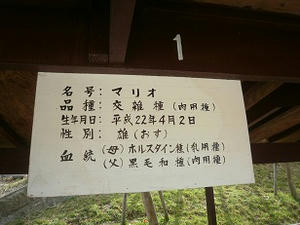 1
名号：マリオ
品種：交雑種（肉用種）
生年月日：平成22年4月2日
性別：雄（おす）
血統：（母）ホルスタイン種（乳用種）
（父）黒毛和種（肉用種）